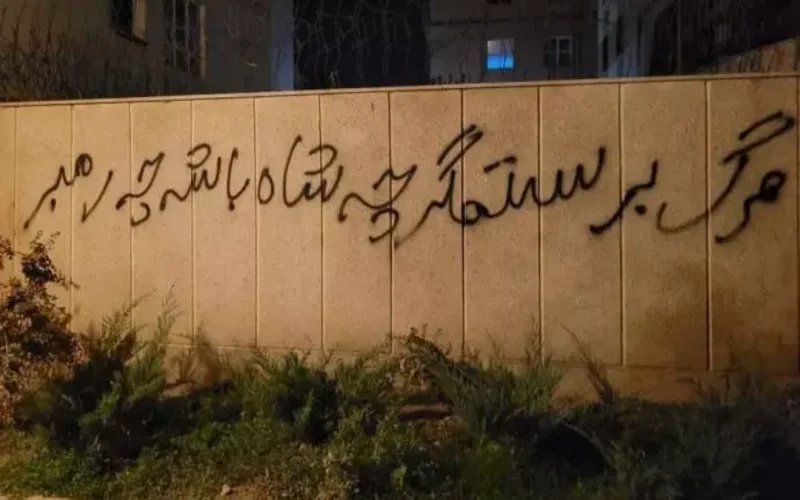 مرگ بر ستمگر چه شاه باشه چه رهبر